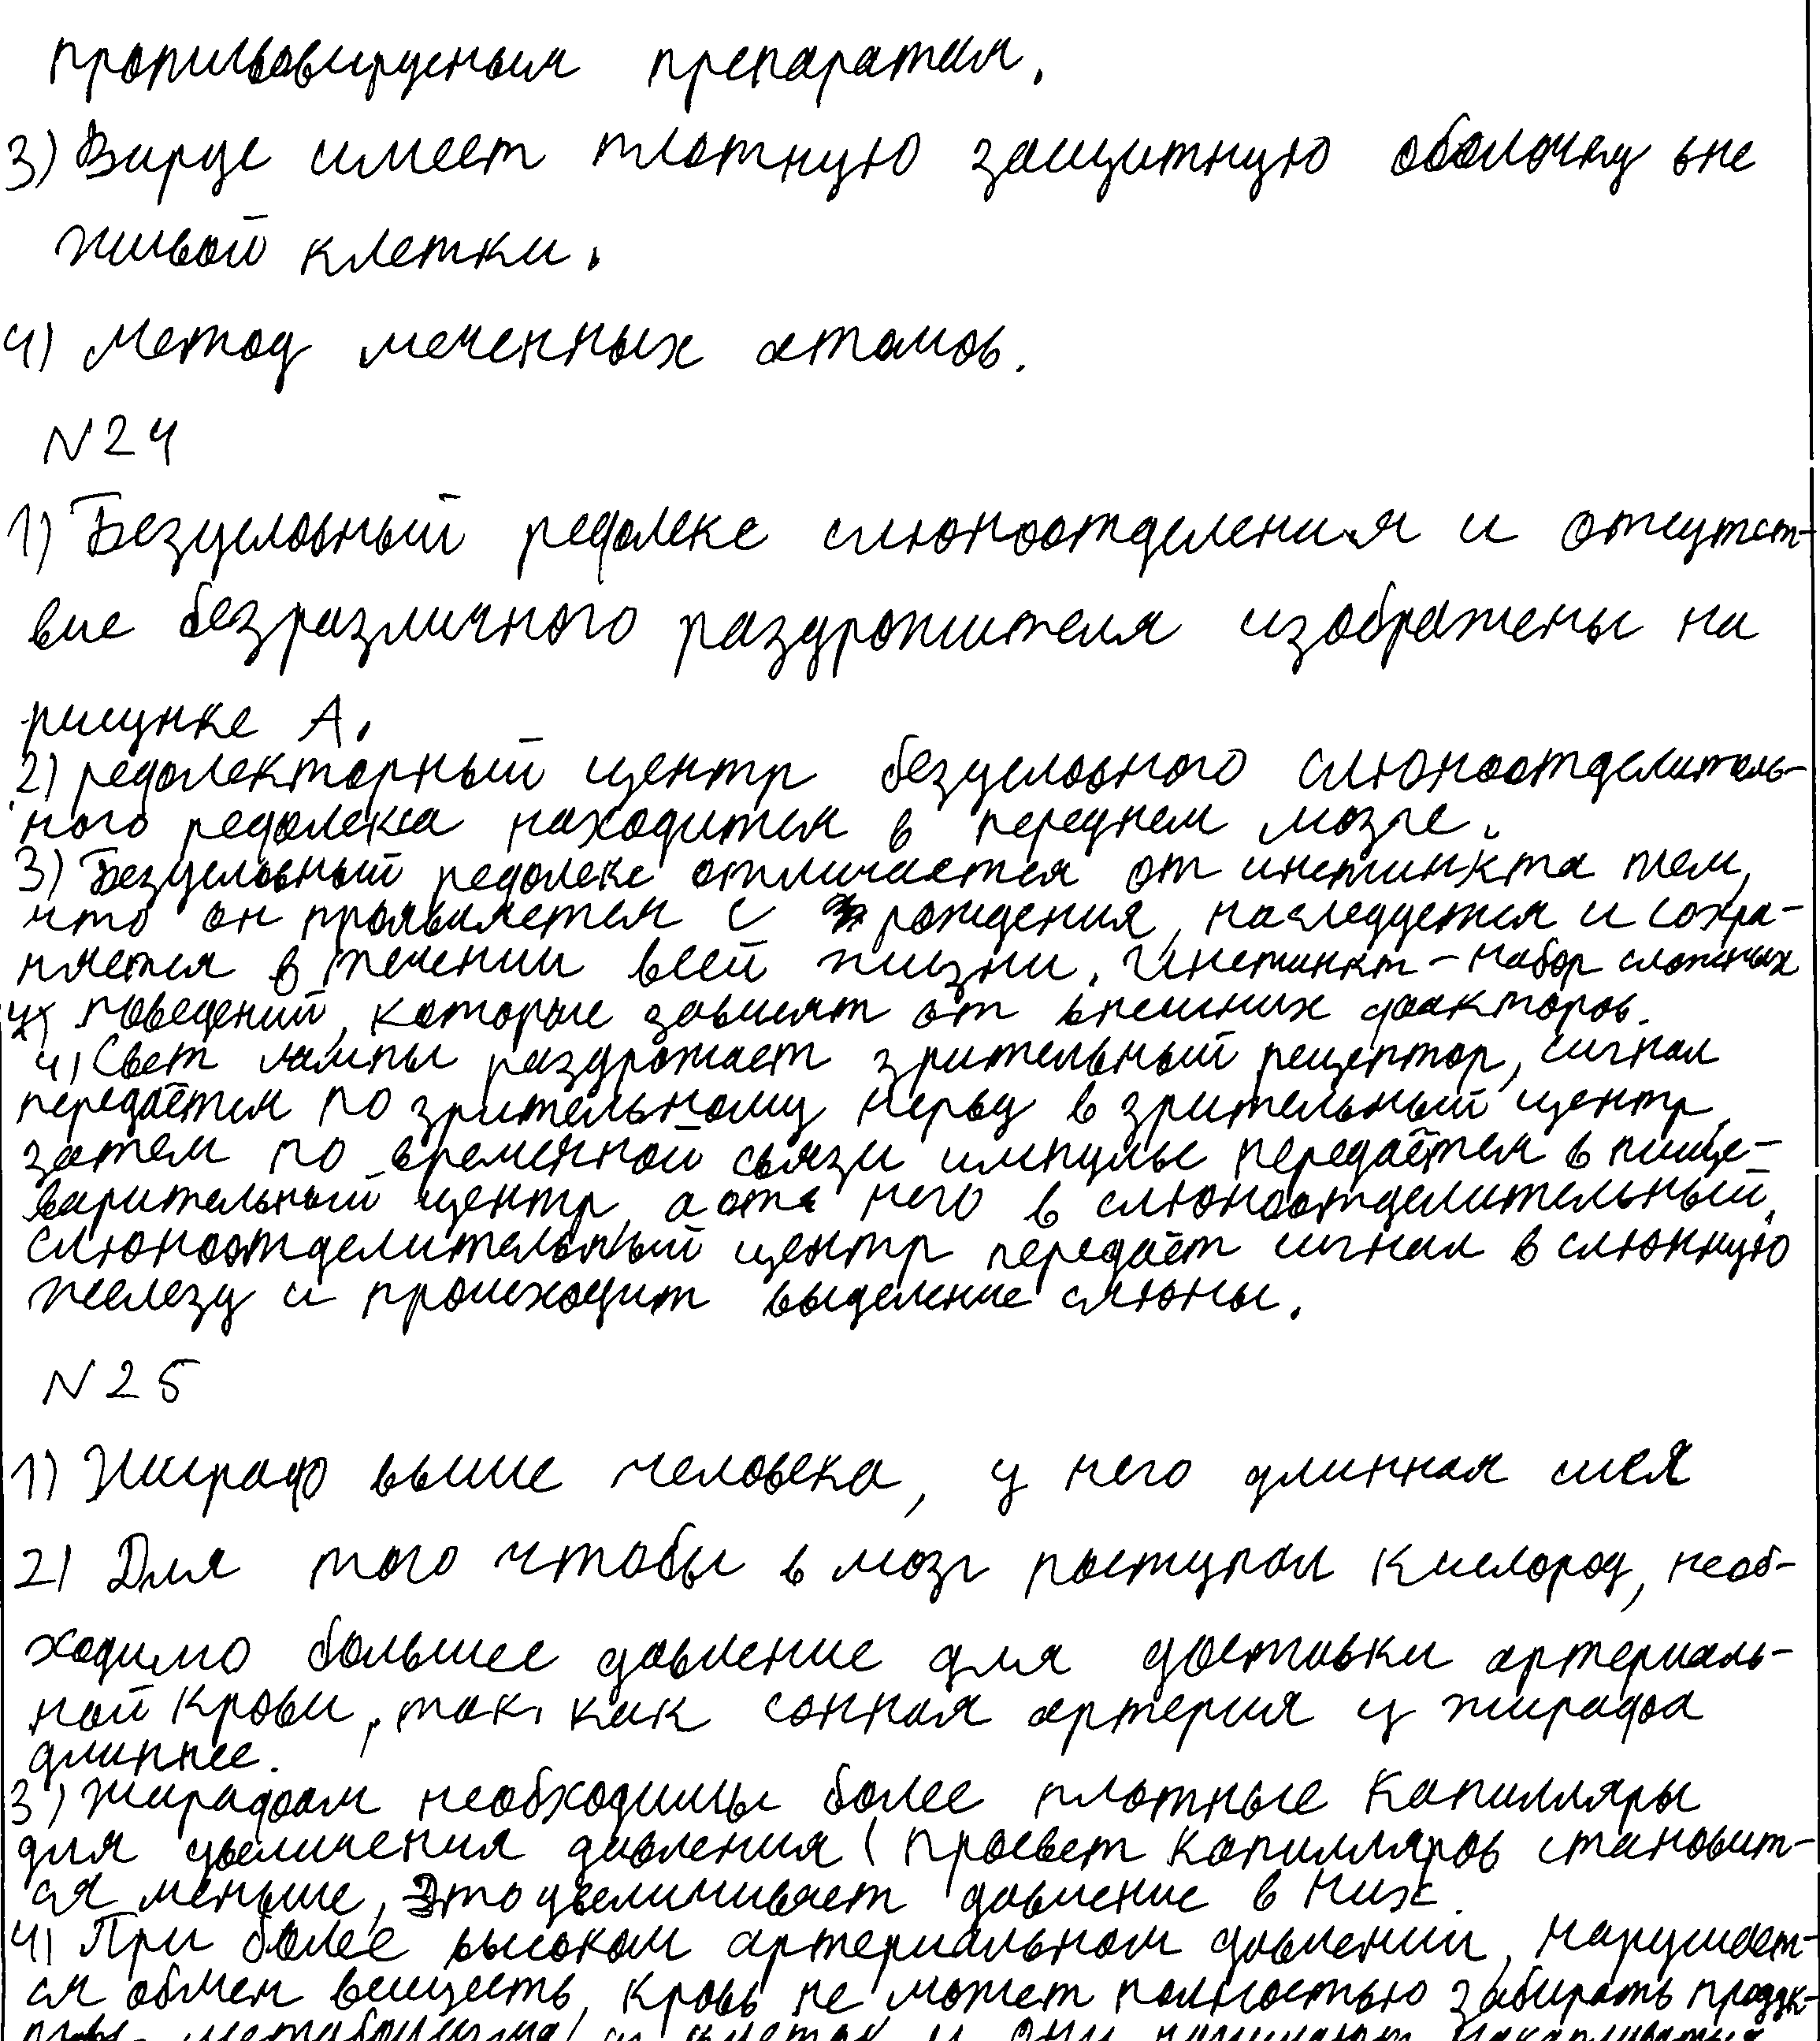 противовирусным препаратам.
3) Вирус имеет плотную защитную оболочку вне
живой клетки.
4) Метод меченных атомов.
N24
1) Безусловный рефлекс слюноотделения и отсутст-
вие безразличного раздражителя изображены на
рисунке А.
2) рефлекторный центр безусловного слюноотделитель-
ного рефлекса находится в переднем мозге.
3) Безусловный рефлекс отличается от инстинкта тем,
что он проявляется с рождения, наследуется и сохра-
няется в течении всей жизни. Инстинкт - набор сложных
поведений, которые зависят от внешних факторов.
4) Свет лампы раздражает зрительный рецептор, сигнал
передаётся по зрительному нерву в зрительный центр,
затем по временной связи импульс передаётся в пище-
варительный центр, а от него в слюноотделительный.
слюноотделительный центр передаёт сигнал в слюнную
железу и происходит выделение слюны.
N25
1) Жираф выше человека, у него длинная шея
2) Для того чтобы в мозг поступал кислород, необ-
ходимо большее давление для доставки артериаль-
ной крови, так как сонная артерия у жирафа
длиннее.
3) Жирафам необходимы более плотные капилляры
для увеличения давления (просвет капилляров становит-
ся меньше, это увеличивает давление в них.
4) При более высоком артериальном давлении, нарушает-
ся обмен веществ, кровь не может полностью забирать продук-
ты метаболизма